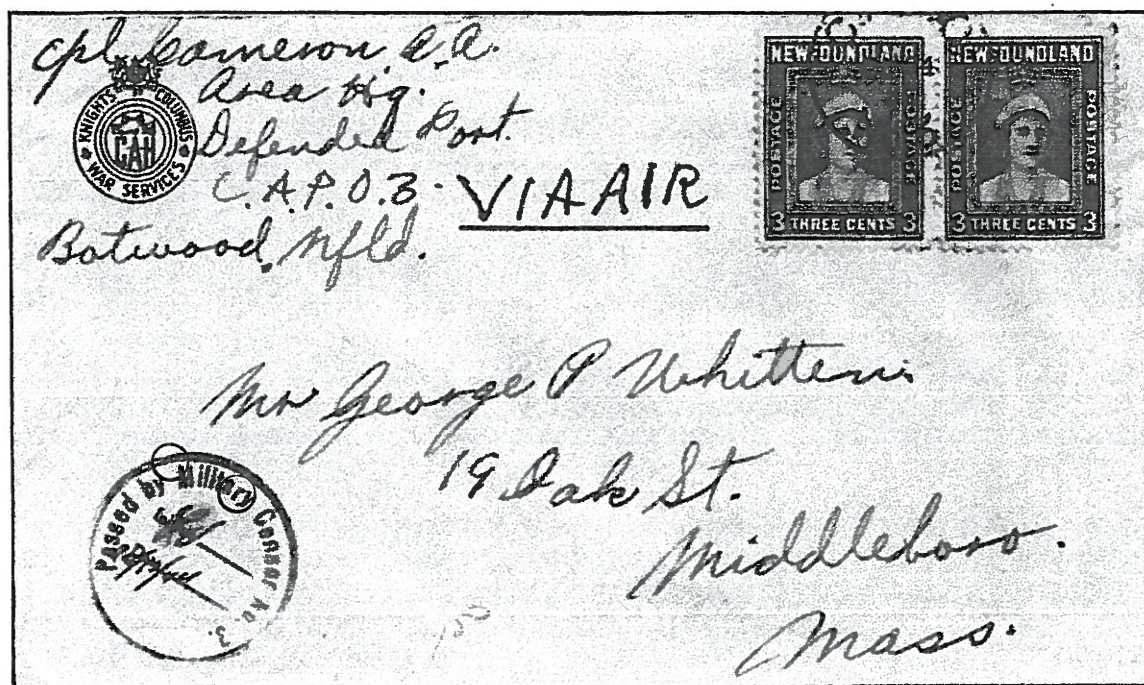 Cpl. Cameron, A. A.
Area Hq.
Defended Port.
C.A.P.O.3.
Botwood, Nfld.
KNIGHTS OF COLUMBUS
CAH
WAR SERVICES
VIA AIR
NEWFOUNDLAND
POSTAGE
POSTAGE
3 THREE CENTS 3
NEWFOUNDLAND
POSTAGE
POSTAGE
3 THREE CENTS 3
Mr George P Whitten.
19 Oak St.
Middleboro.
Mass.
Passed by Military Censor No. 3.